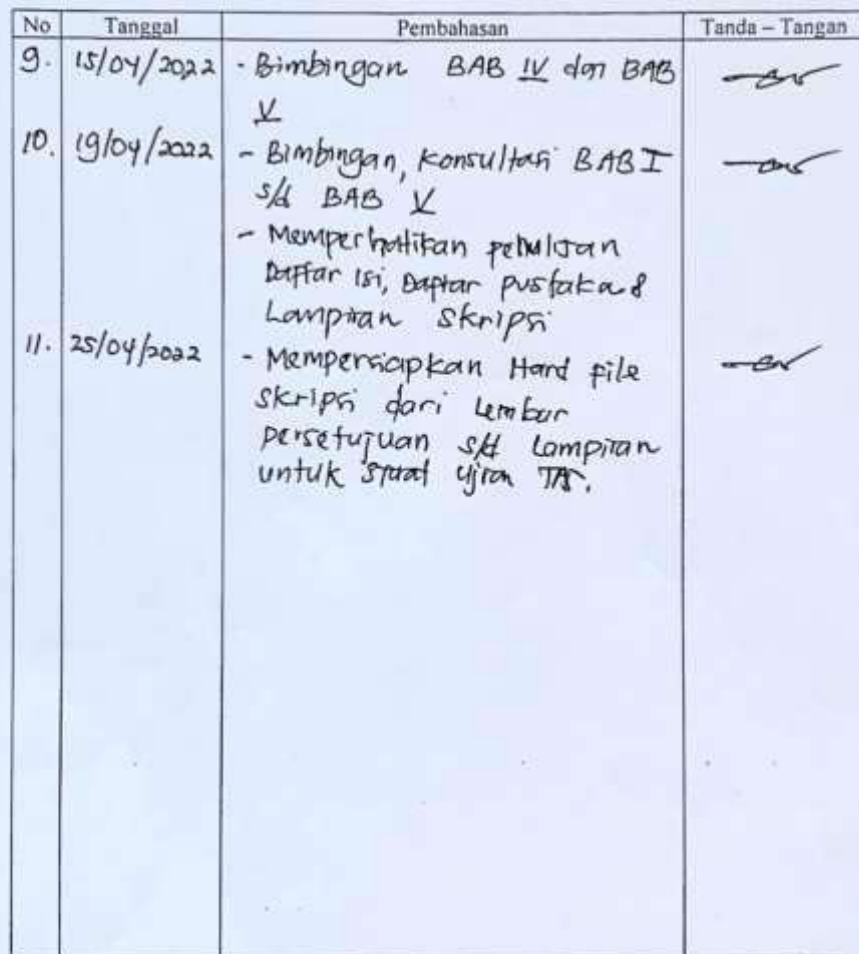 No Tanggal Pembahasan Tanda – Tangan
9. 15/04/2022 - Bimbingan BAB IV dan BAB
V
10. 19/04/2022 - Bimbingan, konsultasi BAB I
s/d BAB V
- Memperhatikan penulisan
Daftar isi, Daftar pustaka &
Lampiran Skripsi
11. 25/04/2022 - Mempersiapkan Hard file
Skripsi dari Lembar
persetujuan s/d Lampiran
untuk ujian TA.